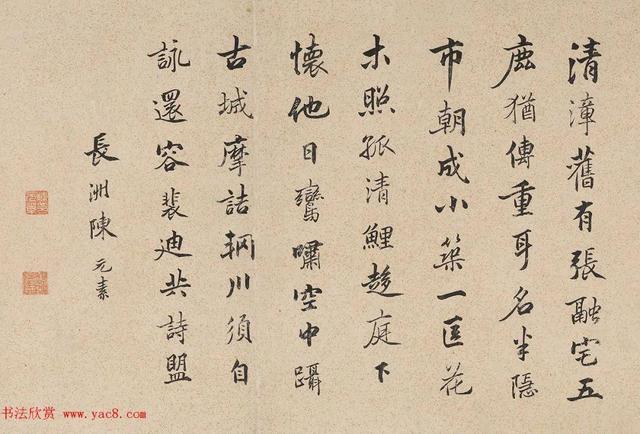 清漳舊有張融宅五
鹿猶傳重耳名半隱
市朝成小築一區花
木照孤清鯉趍庭下
懷他日鸞嘯空中躡
古城摩詰輞川須自
詠還容裴迪共詩盟
長洲陳元素
书法欣赏 www.yac8.com